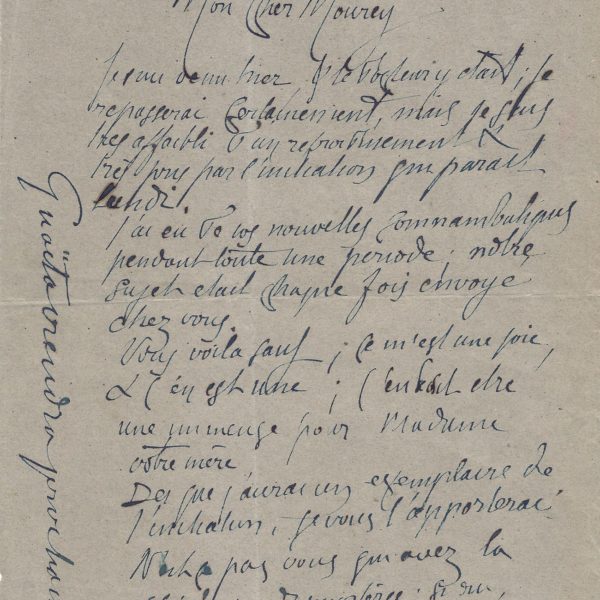 Mon Cher Mourey
Je suis venu hier, et était ; je
repasserai certainement, mais je suis
très affaibli d'un refroidissement &
très pris par l'initiation qui paraît
lundi.
J'ai eu de vos nouvelles somnambuliques
pendant toute une période ; notre
sujet était chaque fois envoyé
chez vous.
Vous voilà sauf ; ce m'est une joie,
& c'en est une ; c'en doit être
une immense pour Madame
votre mère
Dès que j'aurai un exemplaire de
l'initiation, je vous l'apporterai
pas vous qui avez la
Guaita viendra